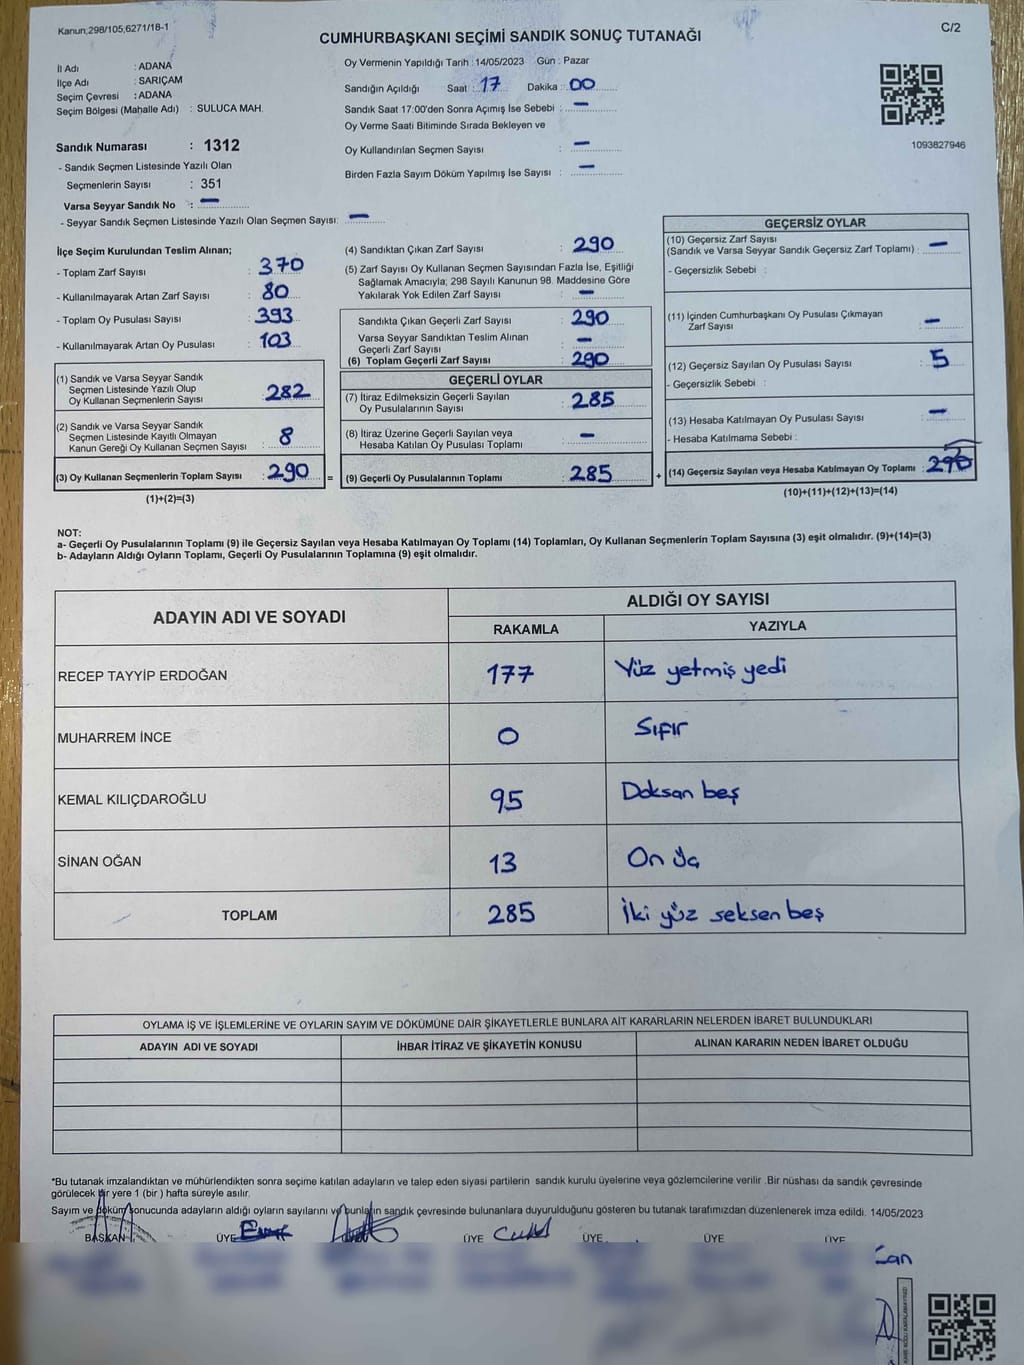 Kanun,298/105,6271/18-1
C/2
CUMHURBAŞKANI SEÇİMİ SANDIK SONUÇ TUTANAĞI
İl Adı : ADANA
İlçe Adı : SARIÇAM
Seçim Çevresi : ADANA
Seçim Bölgesi (Mahalle Adı) : SULUCA MAH.
Sandık Numarası : 1312
- Sandık Seçmen Listesinde Yazılı Olan
Seçmenlerin Sayısı : 351
Varsa Seyyar Sandık No : —
- Seyyar Sandık Seçmen Listesinde Yazılı Olan Seçmen Sayısı: —
Oy Vermenin Yapıldığı Tarih : 14/05/2023 Gün : Pazar
Sandığın Açıldığı Saat : 17 Dakika : 00
Sandık Saat 17:00'den Sonra Açımış İse Sebebi : —
Oy Verme Saati Bitiminde Sırada Bekleyen ve
Oy Kullandırılan Seçmen Sayısı : —
Birden Fazla Sayım Döküm Yapılmış İse Sayısı : —
1093827946
İlçe Seçim Kurulundan Teslim Alınan;
- Toplam Zarf Sayısı : 370
- Kullanılmayarak Artan Zarf Sayısı : 80
- Toplam Oy Pusulası Sayısı : 393
- Kullanılmayarak Artan Oy Pusulası : 103
(1) Sandık ve Varsa Seyyar Sandık
Seçmen Listesinde Yazılı Olup
Oy Kullanan Seçmenlerin Sayısı : 282
(2) Sandık ve Varsa Seyyar Sandık
Seçmen Listesinde Kayıtlı Olmayan
Kanun Gereği Oy Kullanan Seçmen Sayısı : 8
(3) Oy Kullanan Seçmenlerin Toplam Sayısı : 290 =
(1)+(2)=(3)
(4) Sandıktan Çıkan Zarf Sayısı : 290
(5) Zarf Sayısı Oy Kullanan Seçmen Sayısından Fazla İse, Eşitliği
Sağlamak Amacıyla; 298 Sayılı Kanunun 98. Maddesine Göre
Yakılarak Yok Edilen Zarf Sayısı : —
Sandıkta Çıkan Geçerli Zarf Sayısı : 290
Varsa Seyyar Sandıktan Teslim Alınan
Geçerli Zarf Sayısı : —
(6) Toplam Geçerli Zarf Sayısı : 290
GEÇERLİ OYLAR
(7) İtiraz Edilmeksizin Geçerli Sayılan
Oy Pusulalarının Sayısı : 285
(8) İtiraz Üzerine Geçerli Sayılan veya
Hesaba Katılan Oy Pusulası Toplamı : —
(9) Geçerli Oy Pusulalarının Toplamı : 285 +
GEÇERSİZ OYLAR
(10) Geçersiz Zarf Sayısı
(Sandık ve Varsa Seyyar Sandık Geçersiz Zarf Toplamı) : —
- Geçersizlik Sebebi :
(11) İçinden Cumhurbaşkanı Oy Pusulası Çıkmayan
Zarf Sayısı : —
(12) Geçersiz Sayılan Oy Pusulası Sayısı : 5
- Geçersizlik Sebebi :
(13) Hesaba Katılmayan Oy Pusulası Sayısı : —
- Hesaba Katılmama Sebebi :
(14) Geçersiz Sayılan veya Hesaba Katılmayan Oy Toplamı :
(10)+(11)+(12)+(13)=(14)
NOT:
a- Geçerli Oy Pusulalarının Toplamı (9) ile Geçersiz Sayılan veya Hesaba Katılmayan Oy Toplamı (14) Toplamları, Oy Kullanan Seçmenlerin Toplam Sayısına (3) eşit olmalıdır. (9)+(14)=(3)
b- Adayların Aldığı Oyların Toplamı, Geçerli Oy Pusulalarının Toplamına (9) eşit olmalıdır.
ADAYIN ADI VE SOYADI
ALDIĞI OY SAYISI
RAKAMLA YAZIYLA
RECEP TAYYİP ERDOĞAN 177 Yüz yetmiş yedi
MUHARREM İNCE 0 Sıfır
KEMAL KILIÇDAROĞLU 95 Doksan beş
SİNAN OĞAN 13 On üç
TOPLAM 285 İki yüz seksen beş
OYLAMA İŞ VE İŞLEMLERİNE VE OYLARIN SAYIM VE DÖKÜMÜNE DAİR ŞİKAYETLERLE BUNLARA AİT KARARLARIN NELERDEN İBARET BULUNDUKLARI
ADAYIN ADI VE SOYADI İHBAR İTİRAZ VE ŞİKAYETİN KONUSU ALINAN KARARIN NEDEN İBARET OLDUĞU
*Bu tutanak imzalandıktan ve mühürlendikten sonra seçime katılan adayların ve talep eden siyasi partilerin sandık kurulu üyelerine veya gözlemcilerine verilir .Bir nüshası da sandık çevresinde
görülecek bir yere 1 (bir ) hafta süreyle asılır.
Sayım ve döküm sonucunda adayların aldığı oyların sayılarını ve bunların sandık çevresinde bulunanlara duyurulduğunu gösteren bu tutanak tarafımızdan düzenlenerek imza edildi. 14/05/2023
BAŞKAN ÜYE ÜYE ÜYE ÜYE ÜYE